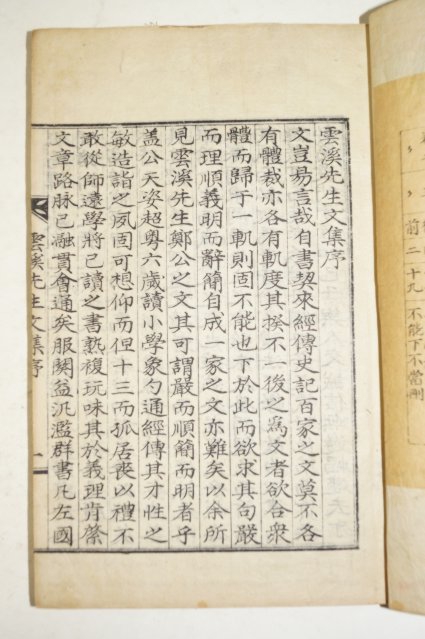 雲溪先生文集序
文豈易言哉自書契來經傳史記百家之文莫不各
有體裁亦各有軌度其揆不一後之爲文者欲合衆
體而歸于一軌則固不能也下於此而欲求其句嚴
而理順義明而辭簡自成一家之文亦難矣以余所
見雲溪先生鄭公之文其可謂嚴而順簡而明者乎
盖公天姿超粤六歲讀小學象勺通經傳其才性之
敏造詣之夙固可想仰而但十三而孤居喪以禮不
敢從師遠學將已讀之書熟複玩味其於義理肯綮
文章路脉已融貫會通矣服闋益汎濫群書凡左國
雲溪先生文集序
一
前二十九
不能下不當刪